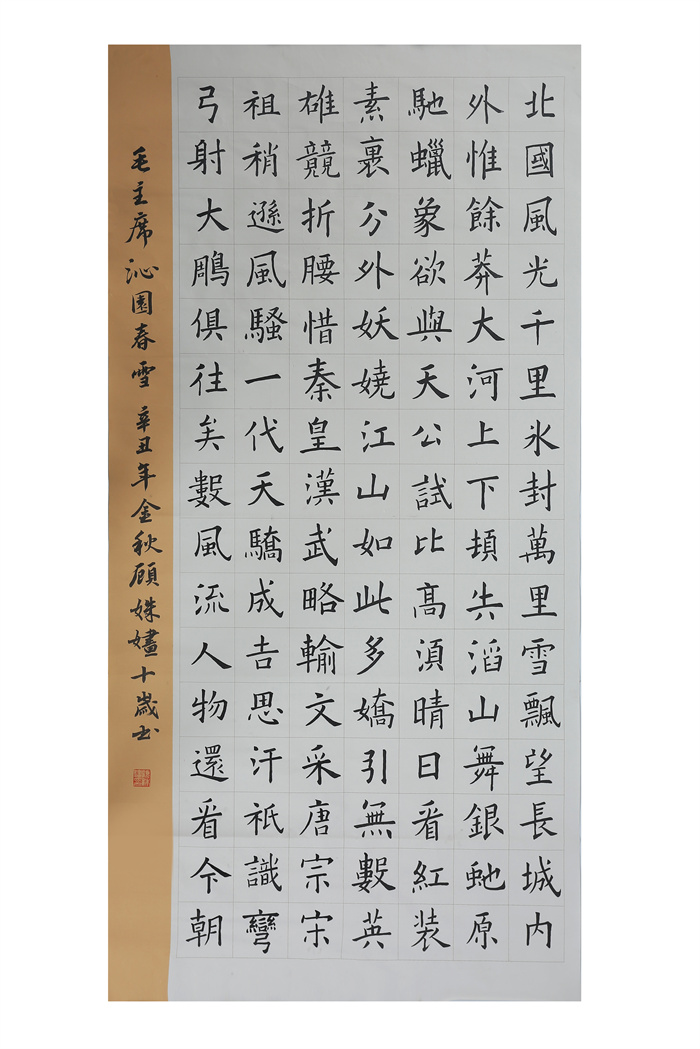 北國風光千里氷封萬里雪飄望長城内
外惟餘莽大河上下頓失滔山舞銀虵原
馳蠟象欲與天公試比高須晴日看紅装
素裹分外妖嬈江山如此多嬌引無數英
雄競折腰惜秦皇漢武略輸文采唐宗宋
祖稍遜風騷一代天驕成吉思汗祇識彎
弓射大鵰俱往矣數風流人物還看今朝
毛主席沁園春雪 辛丑年金秋顾姝嫿十歲书